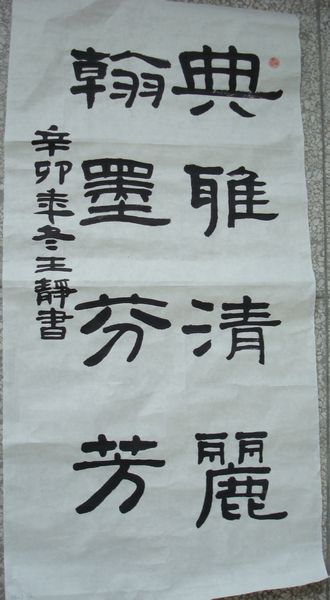 典雅清麗
翰墨芬芳
辛卯年冬王靜書